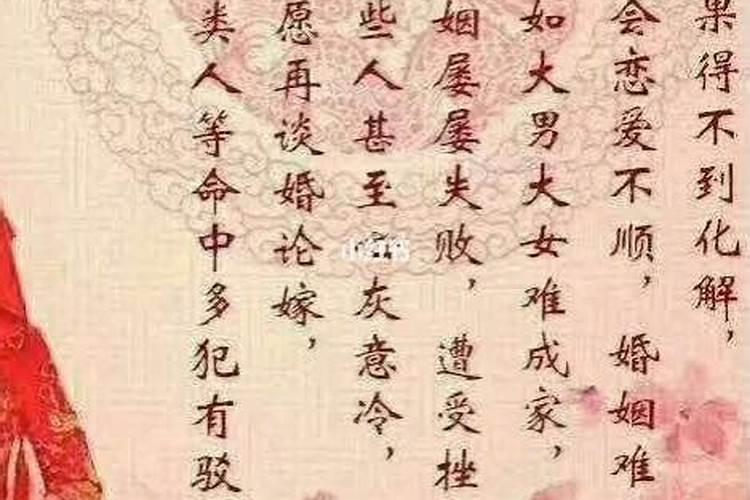 果得不到化解，
会恋爱不顺，婚姻难
如大男大女难成家，
姻屡屡失败，遭受挫
些人甚至心灰意冷，
愿再谈婚论嫁，
类人等命中多犯有驳
小红书